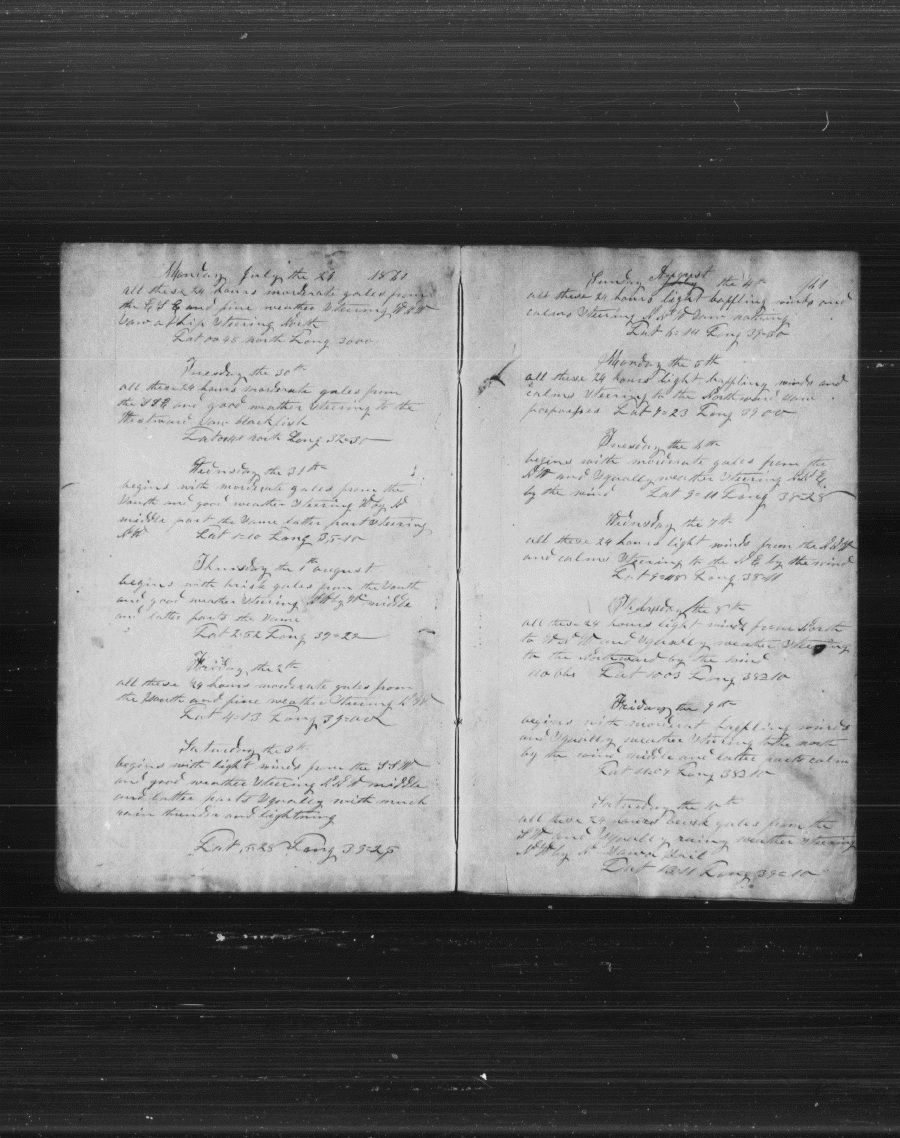 Monday July the 29 1861
all these 24 hours moderate gales from
the E S E and fine weather Steering W N W
Saw a Ship Steering North
Lat 00=45 north Long 30=00
Tuesday the 30th
all these 24 hours moderate gales from
the and good weather Steering to the
Westward Saw blackfish
Lat north Long 32=30
Wednsday the 31th
begins with moderate gales from the
South and good weather Steering W by N
middle part the Same latter part Steering
N W Lat 1=10 Long 35=10
Thursday the 1th august
begins with brisk gales from the South
and good weather Steering by W middle
and latter parts the Same
Lat 2=52 Long 37=22
Friday the 2th
all these 24 hours moderate gales from
the South and fine weather Steering N W
Lat 4=13 Long 39=00
Saturday the 3th
begins with light winds from the S S W
and good weather Steering N N W middle
and latter parts Squally with much
rain thunder and lightning
Lat 5=28 Long 39=25
Sunday August the 4th 1861
all these 24 hours light baffling winds and
calms Steering N N W Saw nothing
Lat 6=14 Long 39=30
Monday the 5th
all these 24 hours light baffling winds and
calms Steering to the Northward Saw
porpoises Lat 7=23 Long 39=00
Tuesday the 6th
begins with moderate gales from the
N W and Squally weather Steering N N E
by the wind Lat 9=11 Long 38=28
Wednsday the 7th
all these 24 hours light winds from the
and calms Steering to the N E by the wind
Lat 9=48 Long 38=11
Thursday the 8th
all these 24 hours light winds from North
to W N W and Squally weather Steering
to the Northward by the wind
no obs Lat 10=03 Long 38=10
Friday the 9th
begins with baffling winds
and Squally weather Steering to the north
by the wind middle and latter parts calm
Lat Long 38=10
Saturday the 10th
all these 24 hours brisk gales from the
S W and Squally rainy weather Steering
N W by N Saw a Sail
Lat Long 39=10